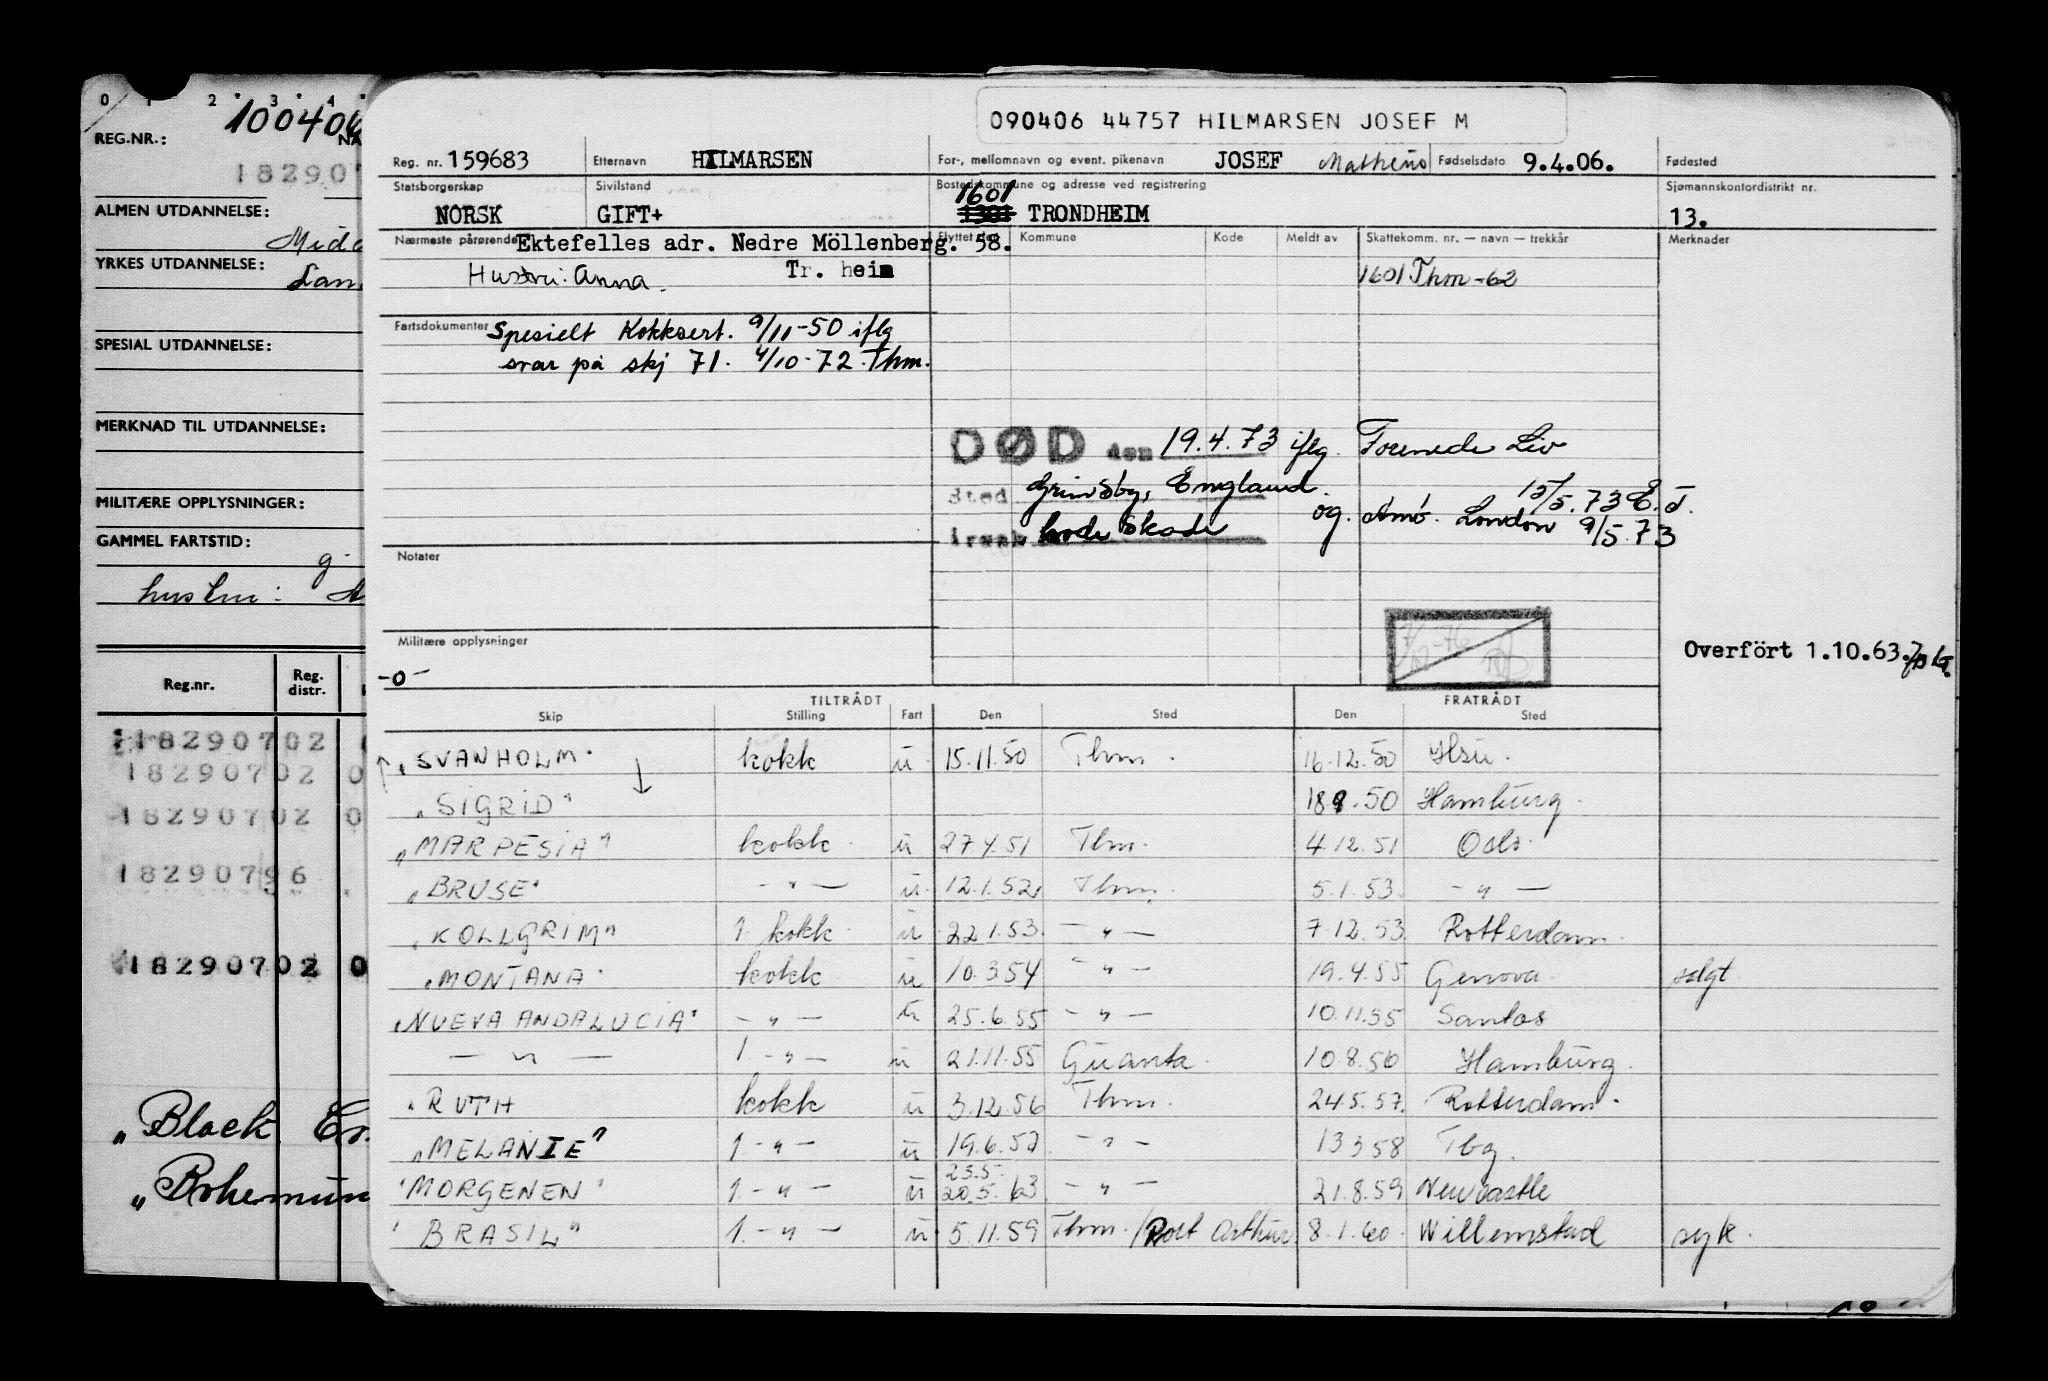 0 1 2 3 4
100406
REG.NR.:
182907
ALMEN UTDANNELSE:
YRKES UTDANNELSE:
SPESIAL UTDANNELSE:
MERKNAD TIL UTDANNELSE:
MILITÆRE OPPLYSNINGER:
GAMMEL FARTSTID:
hustru:
Reg.nr. Reg. distr.
18290702 0
18290702 0
18290702 0
18290796
18290702 0
"Black
090406 44757 HILMARSEN JOSEF M
Reg. nr. 159683 Etternavn HILMARSEN For-, mellomnavn og event. pikenavn JOSEF Matheus Fødselsdato 9.4.06. Fødested
Statsborgerskap Sivilstand Bostedskommune og adresse ved registrering Sjømannskontordistrikt nr.
NORSK GIFT+ 1601 1301 TRONDHEIM 13.
Nærmeste pårørende Ektefelles adr. Nedre Möllenberg. 58. Flyttet Kommune Kode Meldt av Skattekomm. nr. — navn — trekkår Merknader
Hustru: Anna. Tr. heim 1601 Thm -62
Fartsdokumenter Spesielt Kokksert. 9/11-50 iflg
svar på skj 71. 4/10-72. Thm.
DØD den 19.4.73 iflg. Forenede Liv
Sted Grimsby, England. 15/5.73 E.T.
årsak hodeskade og. Amb. London 9/5 73
Notater
Militære opplysninger
-0-
Overfört 1.10.63.
TILTRÅDT FRATRÅDT
Skip Stilling Fart Den Sted Den Sted
"SVANHOLM" kokk u 15.11.50 Thm. 16.12.50 Hsu.
"SIGRID" 50 Hamburg.
"MARPESIA" kokk u 27.4.51 Thm. 4.12.51 Oslo.
"BRUSE" — " — u. 12.1.52 Thm. 5.1.53. — " —
"KOLLGRIM" 1. kokk u 22.1.53. — " — 7.12.53. Rotterdam.
"MONTANA" kokk u 10.3.54 — " — 19.4.55 Genova. solgt
"NUEVA ANDALUCIA" — " — u 25.6.55 — " — 10.11.55 Santos
— " — 1. — " — u 21.11.55 Guanta. 10.8.56 Hamburg.
"RUTH kokk u 3.12.56 Thm. 24.5.57. Rotterdam.
"MELANIE" 1. — " — u 19.6.57 — " — 13 3 58 Tbg.
"MORGENEN" 1. — " — u 23.5. 20.5. — " — 21.8.59 Newcastle
"BRASIL" 1. — " — u 5.11.59 Thm./Port Arthur 8.1.60. Willemstad syk.